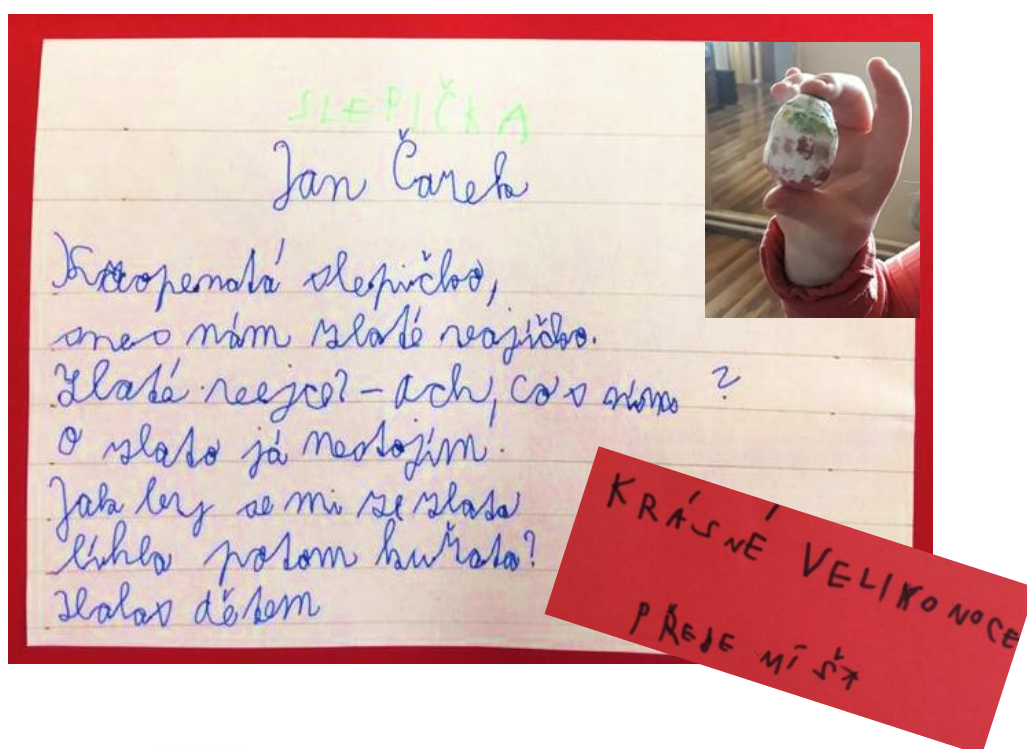 SLEPIČKA
Jan Čarek
Kropenatá slepičko,
snes nám zlaté vajíčko.
Zlaté vejce? - Ach, co s ním?
O zlato já nestojím.
Jak by se mi ze zlata
líhla potom kuřata?
dětem
KRÁSNÉ VELIKONOCE
PŘEJE MÍŠA